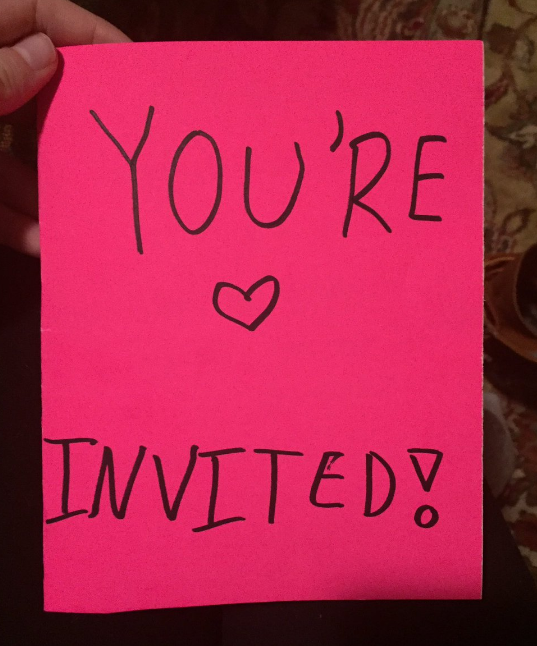 YOU'RE
INVITED!